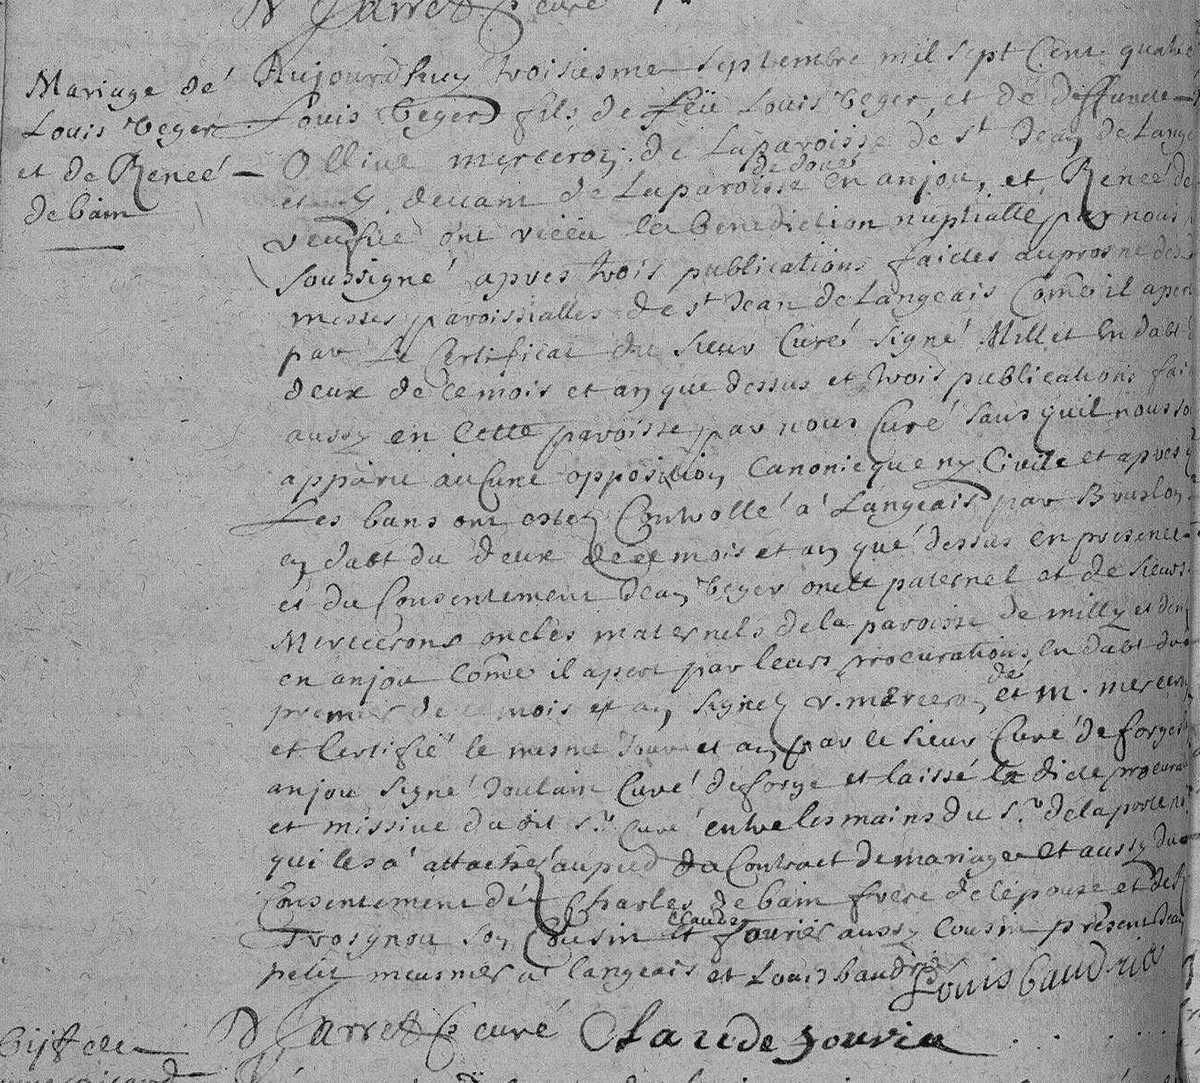 Jarret P curé
Mariage de
Louis Veger
et de Reneé
de bain
Aujourdhuy troisiesme septembre mil sept Cent quatre
Louis Veger fils de feü Louis Veger, et de deffuncte
Ollive merceron de La paroisse de st Jean de Lange
devant de La paroisse de doué en anjou, et Reneé de
ont receu la benediction nuptialle par nous
soussigné apres trois publications faictes au prosne des
messes paroissialles de st Jean de Langeais Come il apert
par Le Certificat du sieur Curé signé Millet En dabt
deux de ce mois et an que dessus et trois publications fai
aussy en Cette paroisse par nous Curé sans quil nous so
apparu aucune opposition Canonicque ny Civile et apres q
Les bans ont estez Controllé a Langeais par Bruslon
en dabt du deux de ce mois et an que dessus en presence
et du Consentement Jean Veger oncle paternel et de sieurs
Mercerons oncles maternels de la paroisse de milly et den
en anjou Come il apert par leurs procurations En dabt du
premier de ce mois et an signez r. merceron et de m. mercero
et Certifié le mesme Jour et an par le sieur Curé de forge
anjou signé Joulain Curé de forge et laissé la dicte procura
et missive du dit sr. Curé entre les mains du sr. de la porte no
qui les a attachés au pied du Contract de mariage et aussy du
Consentement de Charles de bain frere de lépouze et de
son Cousin et claude fourier aussy Cousin present Jean
petit meusnier a langeais et Louis baudrie
Louis baudrie
Jarret P curé Claude